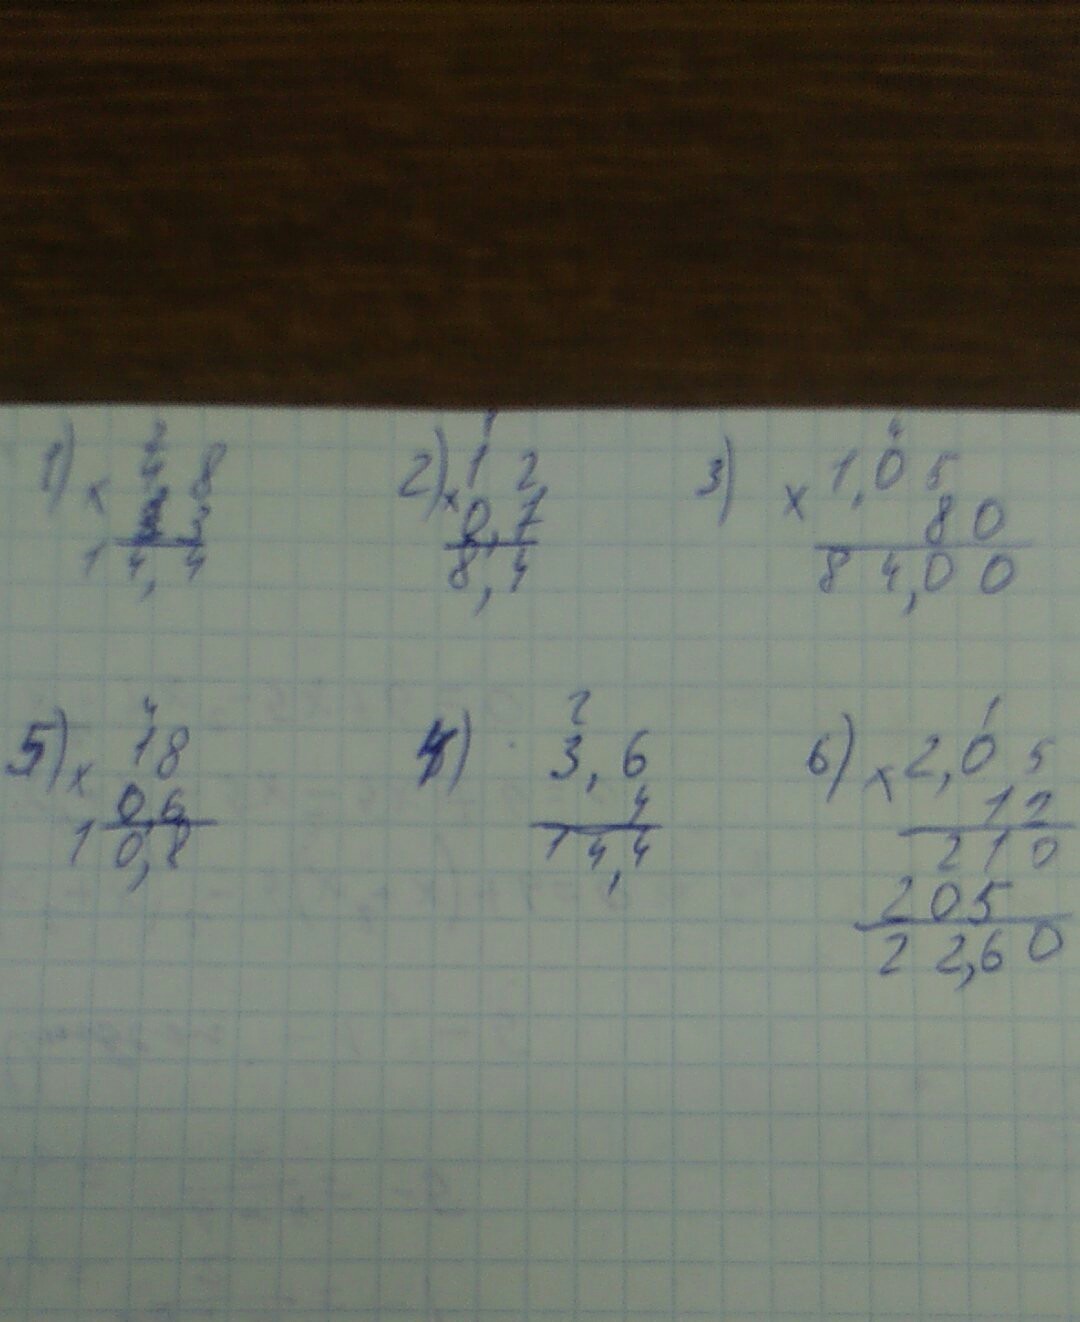 2 1 4
1) × 4,8 2) × 1 2 3) × 1,0 5
3 0,7 8 0
1 4,4 8,4 8 4,0 0
4 2 1
5) × 18 4) 3,6 6) × 2,0 5
0 6 4 1 2
1 0,8 1 4,4 2 1 0
2 0 5
2 2,6 0